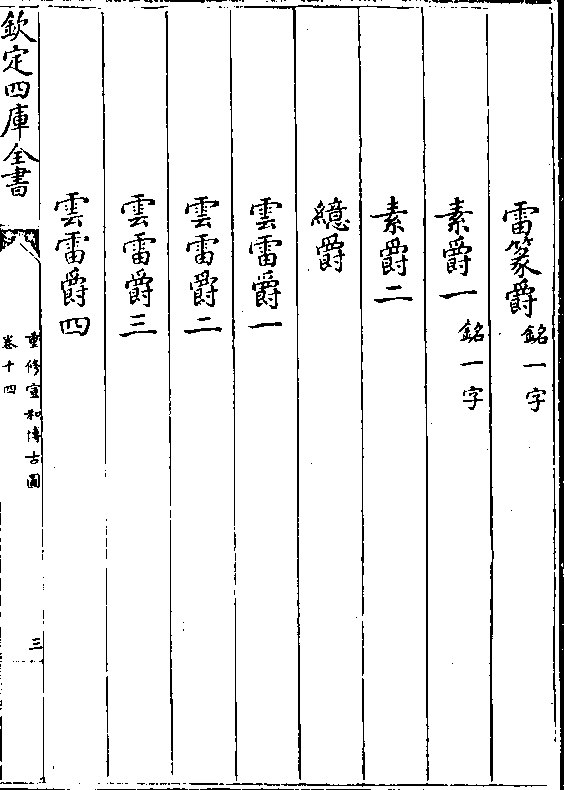 雷篆爵銘一字
素爵一銘一字
素爵二
繶爵
雲雷爵一
雲雷爵二
雲雷爵三
雲雷爵四
欽定四庫全書
重修宣和博古圖
卷十四
三